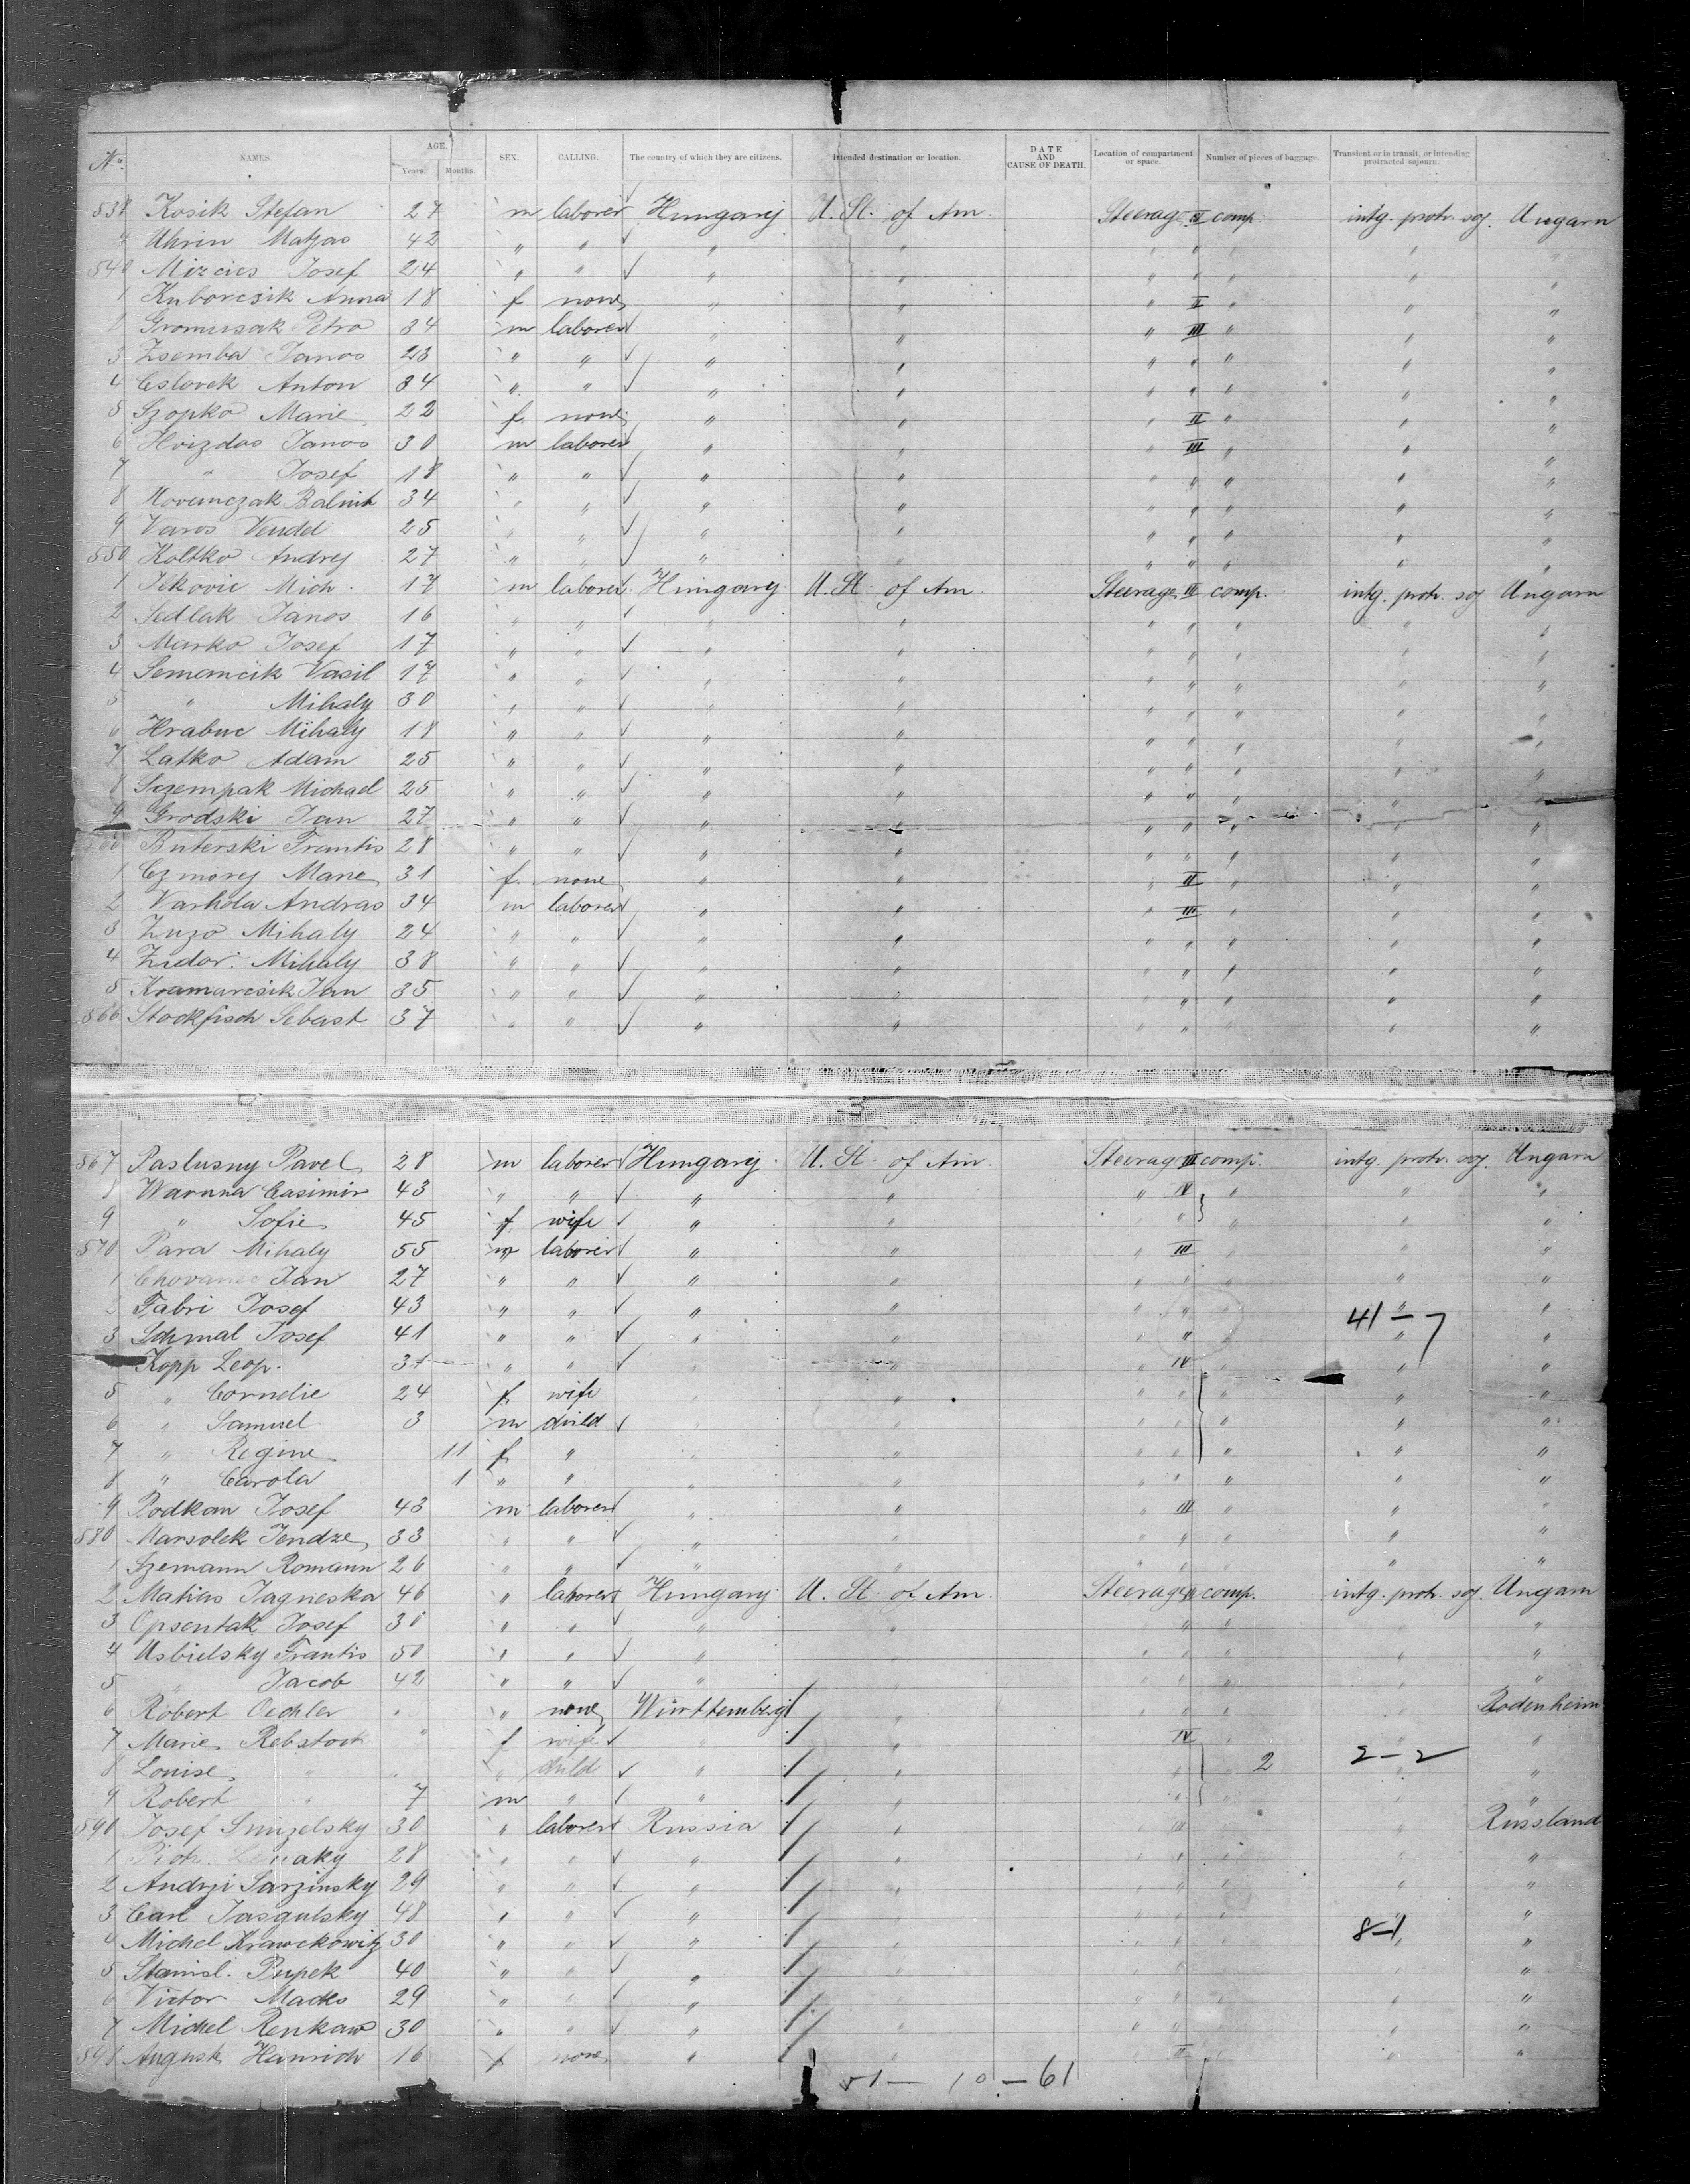 No. NAMES. AGE. Years. Months. SEX. CALLING. The country of which they are citizens. Intended destination or location. DATE AND CAUSE OF DEATH. Location of compartment or space. Number of pieces of baggage. Transient or in transit, or intending protracted sojourn.
538 Kosik Stefan 27 m laborer Hungary U. St. of Am. Steerage III comp. intg. protr. soj. Ungarn
9 Uhrin Matyas 42 " " " " " " " " "
540 Mizcics Josef 24 " " " " " " " " "
1 Kuborcsik Anna 18 f none " " " II " " "
2 Gromusak Petro 34 m laborer " " " III " " "
3 Zsemba Janos 23 " " " " " " " " "
4 Cslovek Anton 34 " " " " " " " " "
5 Szopko Marie 22 f. none " " " II " " "
6 Hvizdos Janos 30 m laborer " " " III " " "
7 " Josef 18 " " " " " " " " "
8 Hovanczak Balint 34 " " " " " " " " "
9 Varos Vendel 25 " " " " " " " " "
550 Koltko Andrej 27 " " " " " " " " "
1 Jekovic Mich. 17 m laborer Hungary U. St. of Am. Steerage III comp. intg. protr. soj Ungarn
2 Sedlak Janos 16 " " " " " " " " "
3 Marko Josef 17 " " " " " " " " "
4 Semancik Vasil 17 " " " " " " " " "
5 " Mihaly 30 " " " " " " " " "
6 Hrabuc Mihaly 18 " " " " " " " " "
7 Latko Adam 25 " " " " " " " " "
8 Szempak Michael 25 " " " " " " " " "
9 Grodski Jan 27 " " " " " " " " "
560 Buterski Frantis 28 " " " " " " " " "
1 Czmorej Marie 31 f. none " " " II " " "
2 Varhola Andras 34 m laborer " " " III " " "
3 Zuzo Mihaly 24 " " " " " " " " "
4 Zudor Mihaly 38 " " " " " " " " "
5 Kramarcsik Jan 35 " " " " " " " " "
566 Stockfisch Sebast 37 " " " " " " " " "
567 Paslusny Pavel 28 m laborer Hungary U. St. of Am. Steerage III comp. intg. protr. soj. Ungarn
8 Waruna Casimir 43 " " " " " IV " " "
9 " Sofie 45 f. wife " " " " " " "
570 Para Mihaly 55 m laborer " " " III " " "
1 Chovanec Jan 27 " " " " " " " " "
Fabri Josef 43 " " " " " " " " "
3 Schmal Josef 41 " " " " " " " " "
41 — 7
Kopp Leop. 31 " " " " " IV " " "
5 " Cornelie 24 f. wife " " " " " " "
6 " Samuel 3 m child " " " " " " "
7 " Regine 11 f " " " " " " " "
8 " Carola 1 " " " " " " " " "
9 Podkan Josef 43 m laborer " " " III " " "
580 Marsolek Jendze 33 " " " " " " " " "
1 Szemann Romann 26 " " " " " " " " "
2 Matias Jagneska 46 " laborer Hungary U. St. of Am. Steerage III comp. intg. protr. soj. Ungarn
3 Opsentak Josef 36 " " " " " " " " "
4 Usbielsky Frantis 50 " " " " " " " " "
5 " Jacob 42 " " " " " " " " "
6 Robert Oechler " " none Württemberg " " " " " Bodenheim
7 Marie Rebstock " f wife " " " IV " " "
8 Louise " " " child " " " " 2 " "
2 — 2
9 Robert " 7 m " " " " " " " "
590 Josef Smizelsky 30 " laborer Russia " " III " " Russland
1 28 " " " " " " " " "
2 Andrzi Sarzinsky 29 " " " " " " " " "
3 Carl Jasgulsky 48 " " " " " " " " "
8—1
4 Michel Krawckowitz 30 " " " " " " " " "
5 Stanisl. Pupek 40 " " " " " " " " "
6 Victor Macks 29 " " " " " " " " "
7 Michel Renkaw 30 " " " " " " " " "
598 August Heinrich 16 f none " " " II " " "
51 — 10 — 61